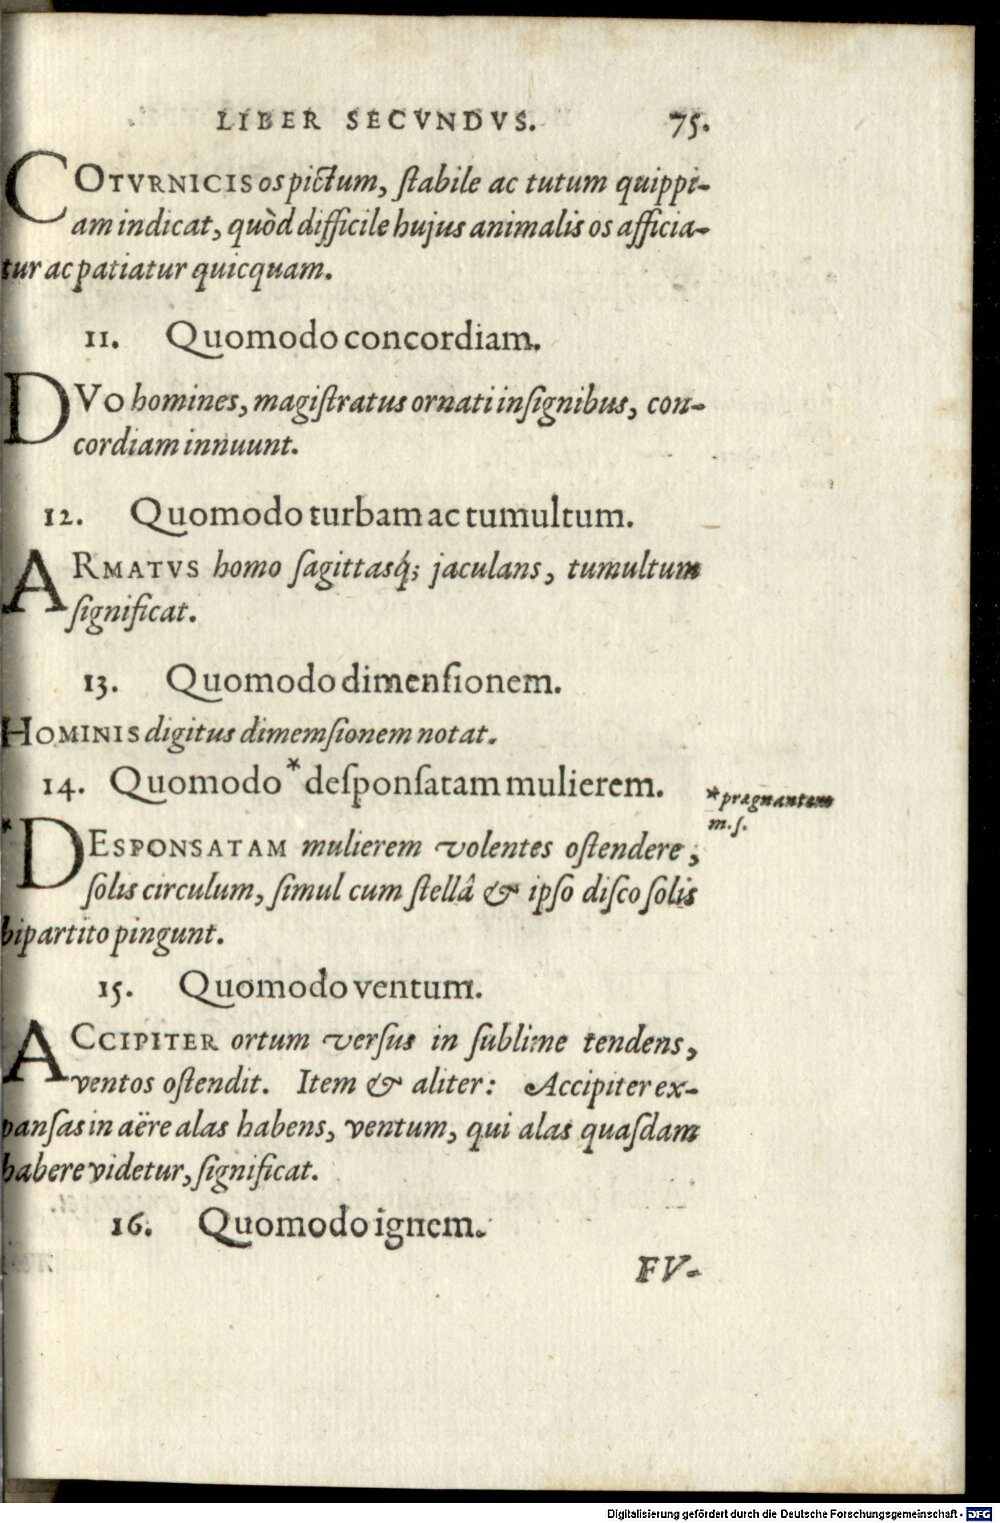 LIBER SECVNDVS. 75.
COTVRNICIS os pictum, ſtabile ac tutum quippi-
am indicat, quòd difficile hujus animalis os afficia-
tur ac patiatur quicquam.
11. Quomodo concordiam.
DVO homines, magiſtratus ornati inſignibus, con-
cordiam innuunt.
12. Quomodo turbam ac tumultum.
ARMATVS homo ſagittasq́; jaculans, tumultum
ſignificat.
13. Quomodo dimenſionem.
HOMINIS digitus dimemſionem notat.
14. Quomodo *deſponſatam mulierem.
*prægnantem
m.ſ.
*DESPONSATAM mulierem volentes oſtendere,
ſolis circulum, ſimul cum ſtellâ & ipſo diſco ſolis
bipartito pingunt.
15. Quomodo ventum.
ACCIPITER ortum verſus in ſublime tendens,
ventos oſtendit. Item & aliter: Accipiter ex-
panſas in aëre alas habens, ventum, qui alas quaſdam
habere videtur, ſignificat.
16. Quomodo ignem.
FV-
Digitalisierung gefördert durch die Deutsche Forschungsgemeinschaft - DFG